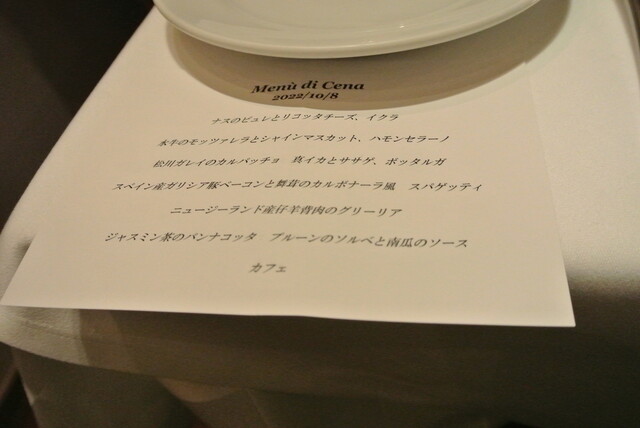 Menù di Cena
2022/10/8
ナスのピュレとリコッタチーズ、イクラ
水牛のモッツァレラとシャインマスカット、ハモンセラーノ
松川ガレイのカルパッチョ　真イカとササゲ、ボッタルガ
スペイン産ガリシア豚ベーコンと舞茸のカルボナーラ風　スパゲッティ
ニュージーランド産仔羊背肉のグリーリア
ジャスミン茶のパンナコッタ　プルーンのソルベと南瓜のソース
カフェ